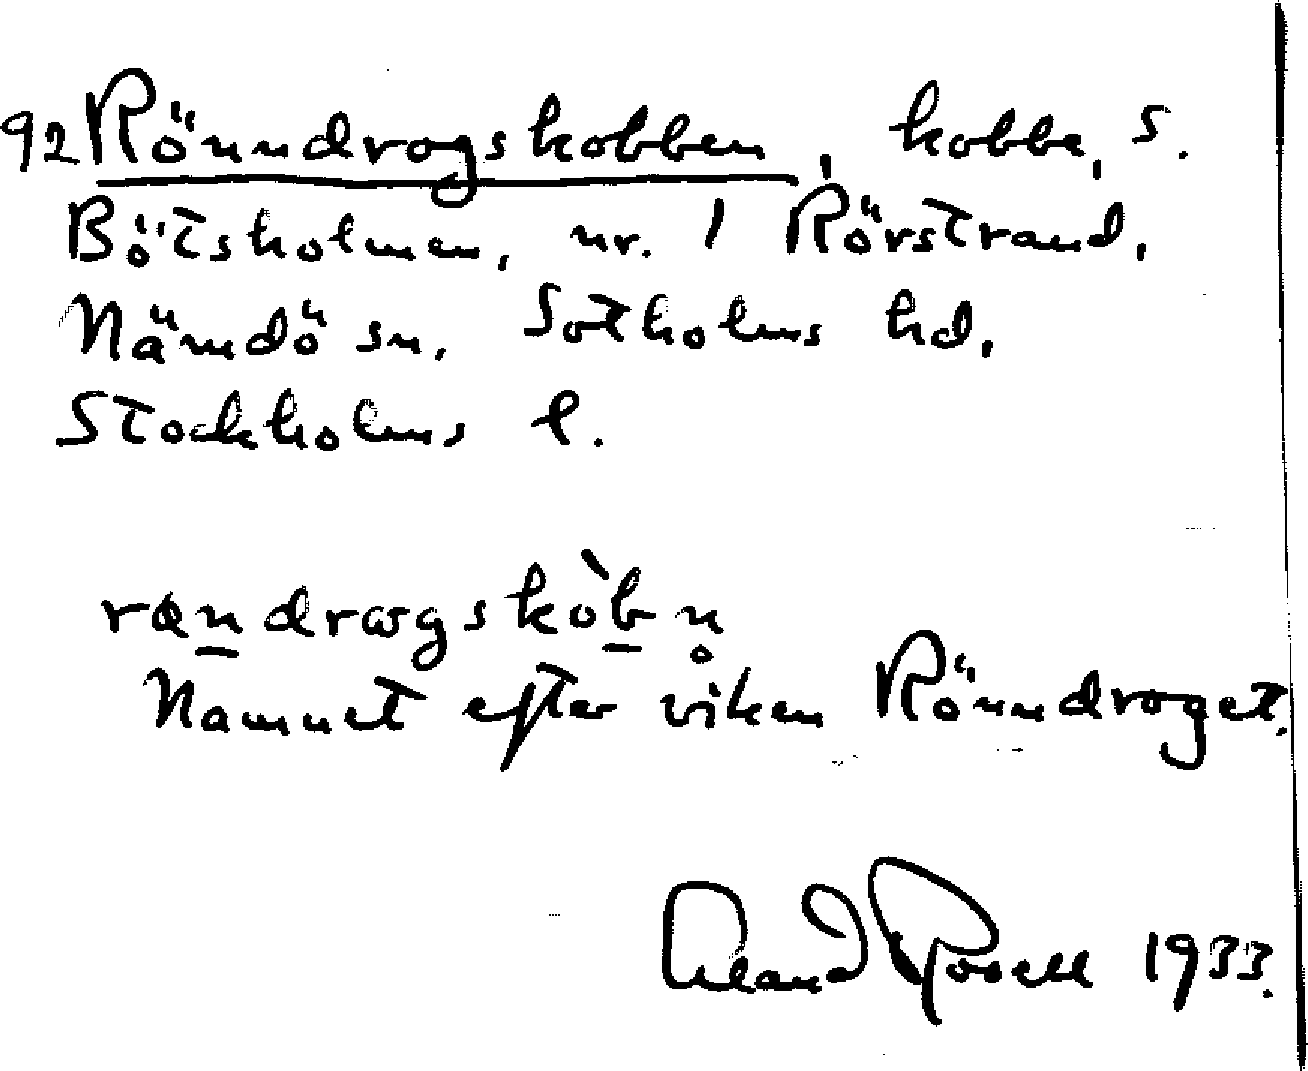 92 Rönndrogskobben, kobbe, S.
Bötsholmen, nr. 1 Rörstrand,
Nämdö sn. Sotholms hd.
Stockholms l.
Namnet efter viken Rönndroget.
1933.